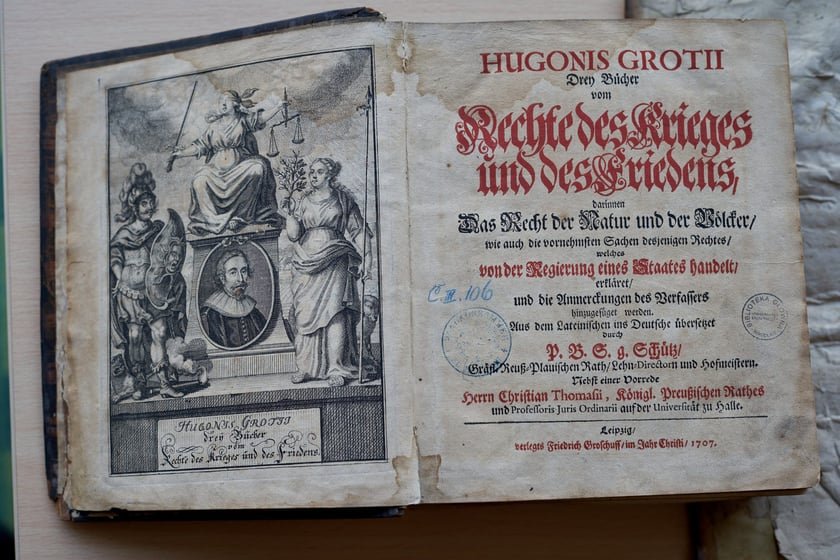 HUGONIS GROTII
drey Bücher
vom
Rechte des Krieges und des Friedens.
HUGONIS GROTII
Drey Bücher
vom
Rechte des Krieges
und des Friedens,
darinnen
Das Recht der Natur und der Völcker/
wie auch die vornehmsten Sachen desjenigen Rechtes/
welches
von der Regierung eines Staates handelt/
erkläret/
und die Anmerckungen des Verfassers
hinzugefüget werden.
Aus dem Lateinischen ins Deutsche übersetzet
durch
P. B. S. g. Schütz/
Gräfl. Reuß-Plauischen Rath/Lehn-Directorn und Hofmeistern.
Nebst einer Vorrede
Herrn Christian Thomasii, Königl. Preußischen Rathes
und Professoris Juris Ordinarii auf der Universität zu Halle.
Leipzig/
verlegts Friedrich Groschuff/im Jahr Christi/1707.
C. II. 106
BIBLIOTEKA